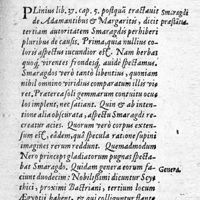 PLinius lib. 37. cap. 5. postquā tractauit
de Adamantibus & Margaritis, dicit
tertiam autoritatem Smaragdis perhiberi
pluribus de causis, Prima, quia nullius co-
loris aspectus iucundior est. Nam herbas
quoq; virentes frondesq́; auidè spectamus,
Smaragdos verò tantò libentius, quoniam
nihil omnino viridius comparatum illis vi-
ret, Praeterea soli gemmarum contuitu ocu-
los implent, nec satiant. Quin & ab intenti-
one alia obscurata, aspectu Smaragdi re-
creatur acies. Quorum verò corpus exten-
sum est, eâdem, quâ specula ratione supini
imagines rerum reddunt. Quemadmodum
Nero princeps gladiatorum pugnas specta-
bat Smaragdo. Quidam genera eorum fa-
ciunt duodecim: Nobilissimi dicuntur Scy-
thici, proximi Bactriani, tertium locum
Aegyptii habent, & qui colliguntur
Smaragdi
praestātia.
Genera.